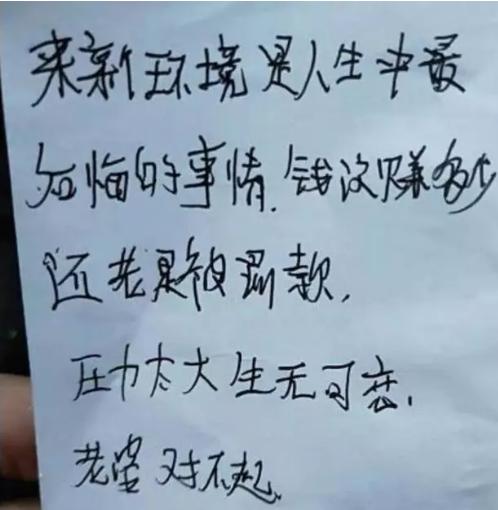 来新环境是人生中最
后悔的事情.钱没赚多少
还老是被罚款,
压力太大生无可恋.
老婆对不起.